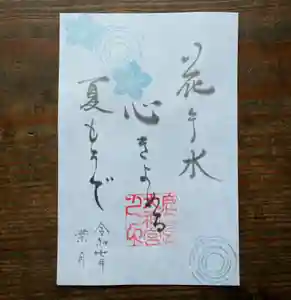 花手水
心きよめる
夏もうで
令和七年
葉月